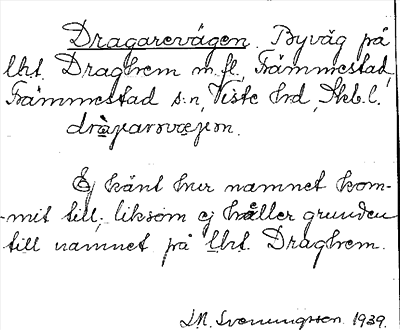 Dragarevägen. Byväg på
lht. Draghem m.fl., Främmestad,
Främmestad s:n, Viste hrd, Skb.l.
Ej känt hur namnet kom-
-mit till, liksom ej häller grunden
till namnet på lht. Draghem.
L.N. Svenungsson 1939.